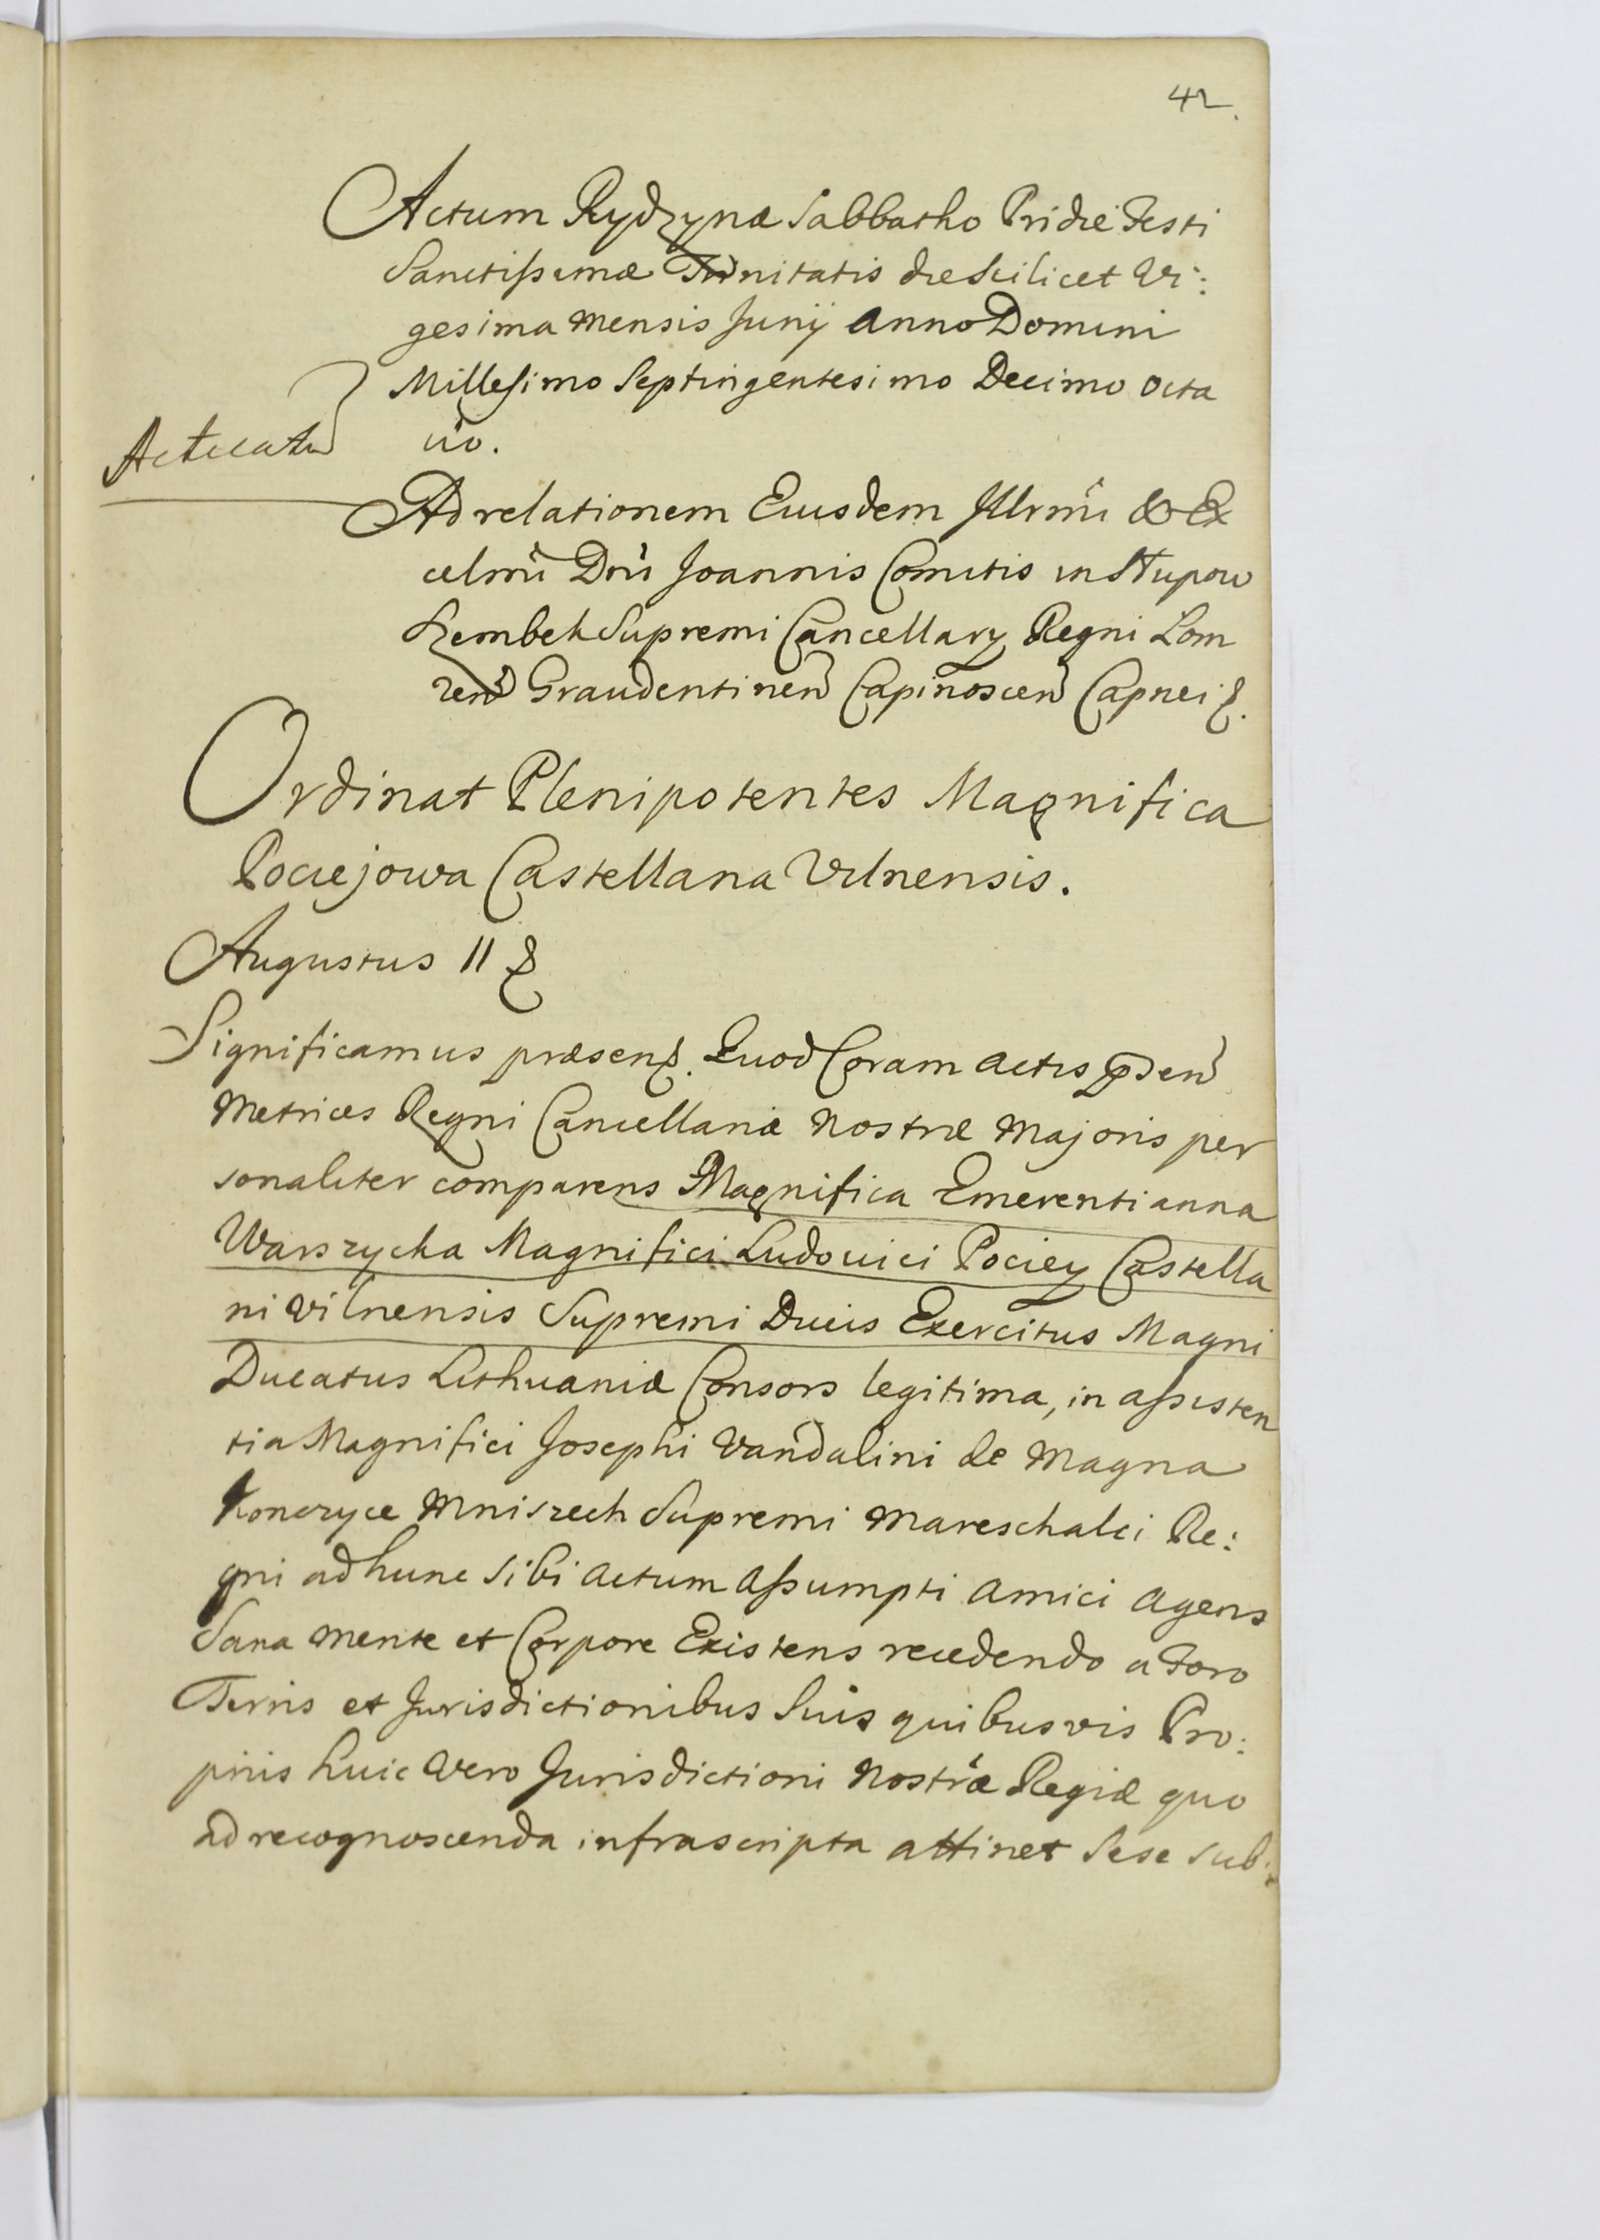 42.
Actum Rydzynæ Sabbatho Pridie Festi
Sanctissimæ Trinitatis die Scilicet Vi:
gesima Mensis Junij Anno Domini
Millesimo Septingentesimo Decimo Octa
vo.
Acticatu
Ad relationem Eiusdem Illrmi & Ex
celrmi Dni Joannis Comitis in Słupow
Szembek Supremi Cancellary Regni Lom
zen Graudentinen Capinoscen Capnei
Ordinat Plenipotentes Magnifica
Pociejowa Castellana Vilnensis.
Augustus II
Significamus præsen. Quod Coram Actis
Metrices Regni Cancellariæ Nostræ Majoris per
sonaliter comparens Magnifica Emerentianna
Warszycka Magnifici Ludovici Pociey Castella
ni Vilnensis Supremi Ducis Exercitus Magni
Ducatus Lithuaniæ Consors legitima, in assisten
tia Magnifici Josephi Vandalini de Magna
Konczyce Mniszech Supremi Mareschalci Re:
gni ad hunc sibi Actum Assumpti Amici Agens
Sana Mente et Corpore Existens recedendo a Foro
Terris et Jurisdictionibus Suis quibusvis Pro:
priis huic Vero Jurisdictioni Nostræ Regiæ quo
ad recognoscenda infrascripta attinet Sese sub: